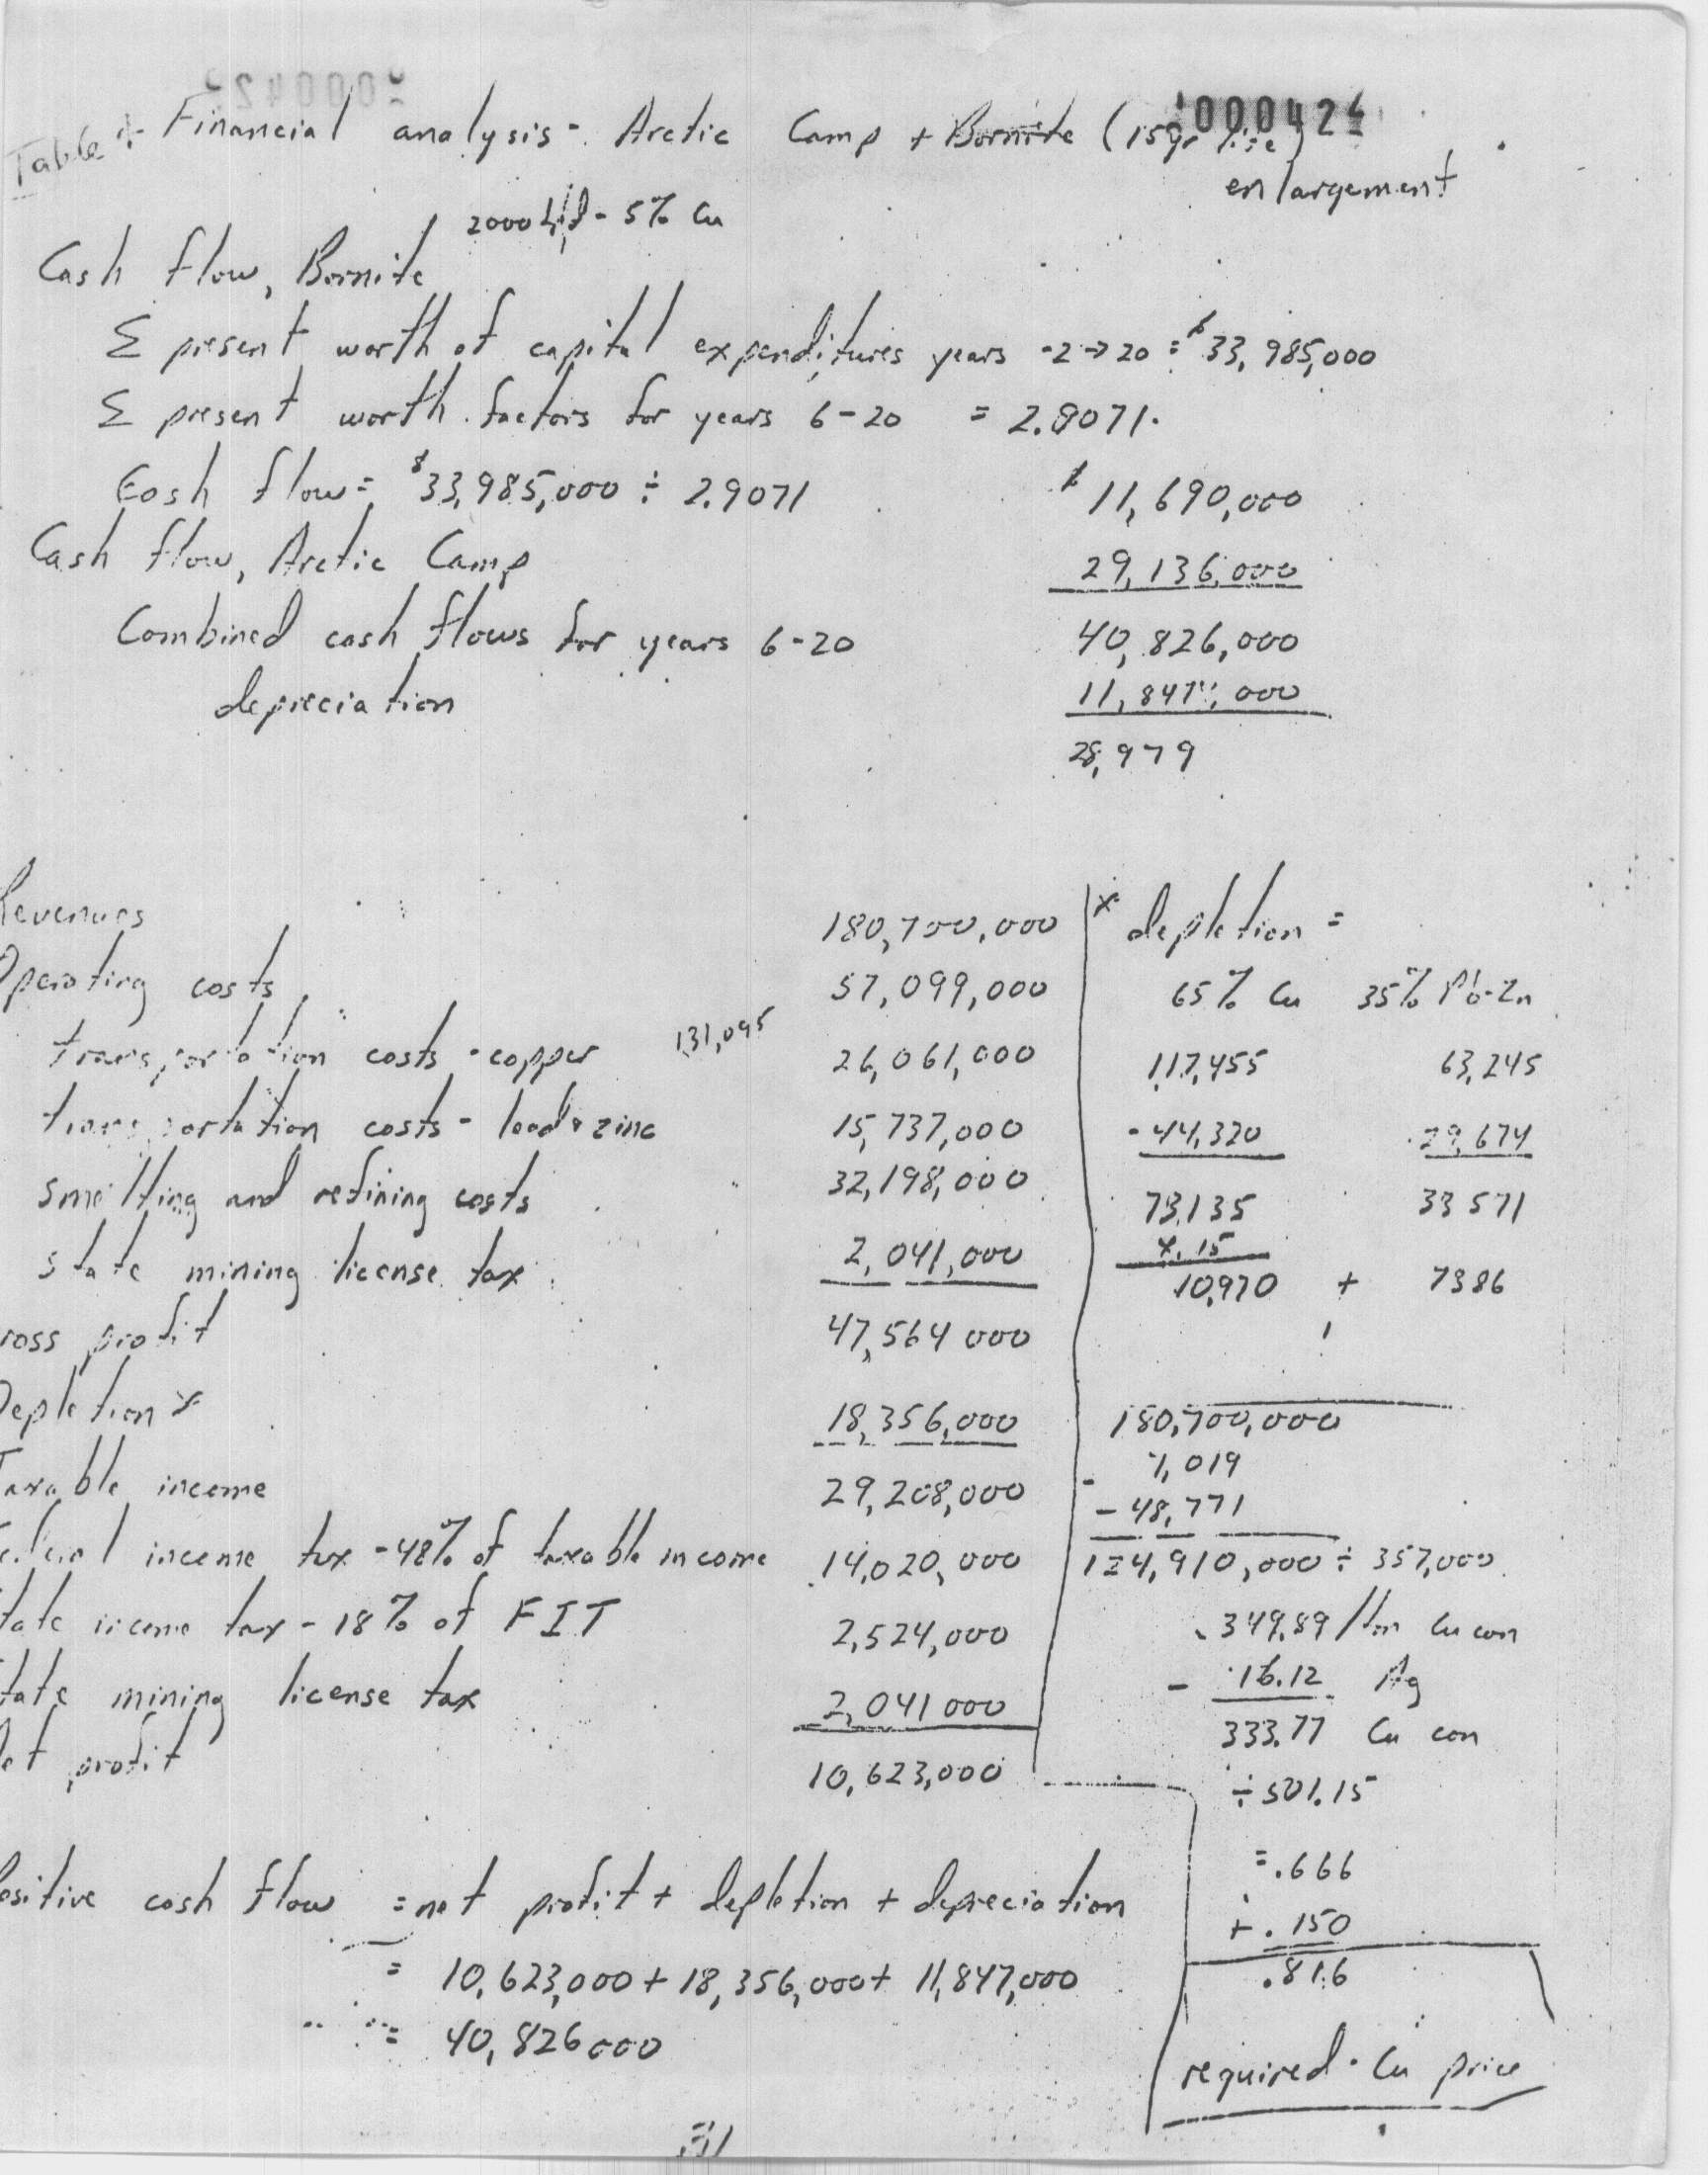 000042
1000424
Table
Financial analysis - Arctic Camp + Bornite (15yr life)
enlargement
2000 - 5% Cu
Cash flow, Bornite
Σ present worth of capital expenditures years -2→20 = $33,985,000
Σ present worth factors for years 6-20 = 2.9071.
Cash flow = $33,985,000 ÷ 2.9071 $11,690,000
Cash flow, Arctic Camp 29,136,000
Combined cash flows for years 6-20 40,826,000
depreciation 11,847,000
28,979
Revenues 180,700,000
Operating costs 57,099,000
131,095
transportation costs - copper 26,061,000
transportation costs - lead & zinc 15,737,000
smelting and refining costs 32,198,000
state mining license tax 2,041,000
ross profit 47,564 000
Depletion * 18,356,000
Taxable income 29,208,000
income tax - 48% of taxable income 14,020,000
tate income tax - 18% of FIT 2,524,000
tate mining license tax 2,041 000
et profit 10,623,000
* depletion =
65% Cu 35% Pb-Zn
117,455 63,245
-44,320 -29,674
73,135 33 571
x.15
10,970 + 7386
180,700,000
- 7,019
- 48,771
124,910,000 ÷ 357,000
349.89/ton Cu con
- 16.12 Ag
333.77 Cu con
÷ 501.15
= .666
+ .150
.816
required Cu price
Positive cash flow = net profit + depletion + depreciation
= 10,623,000 + 18,356,000 + 11,847,000
= 40,826 000